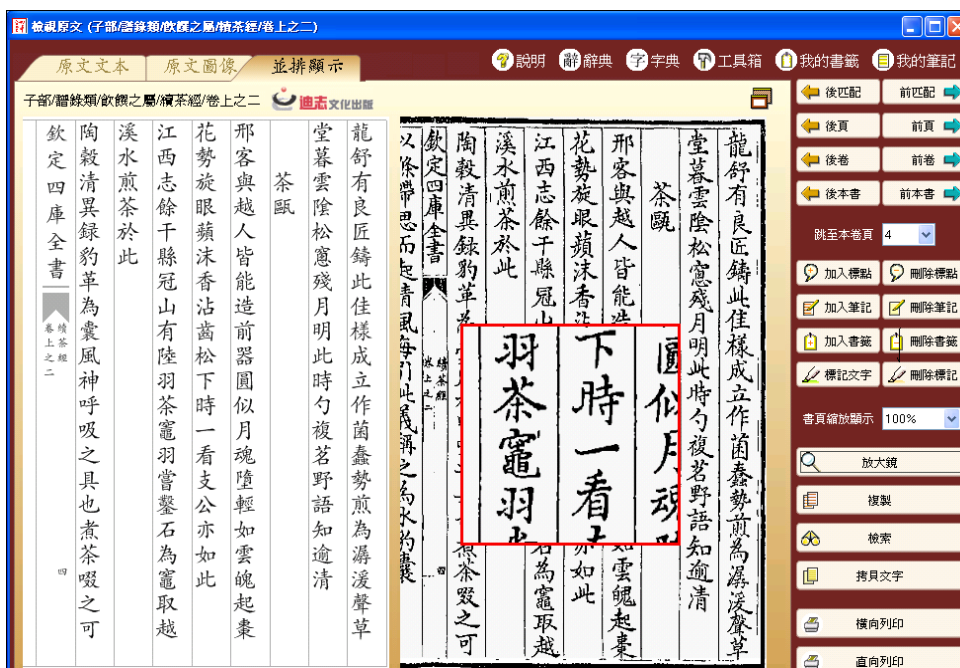 檢視原文 (子部/譜錄類/飲饌之屬/續茶經/卷上之二)
原文文本
原文圖像
並排顯示
說明
辭 辭典
字 字典
工具箱
我的書籤
我的筆記
子部/譜錄類/飲饌之屬/續茶經/卷上之二
迪志文化出版
龍舒有良匠鑄此佳樣成立作菌蠢勢煎為潺湲聲草
堂暮雲陰松窻殘月明此時勺複茗野語知逾清
茶甌
邢客與越人皆能造前器圓似月魂墮輕如雲魄起棗
花勢旋眼蘋沫香沾齒松下時一看支公亦如此
江西志餘干縣冠山有陸羽茶竈羽嘗鑿石為竈取越
溪水煎茶於此
陶穀清異録豹革為囊風神呼吸之具也煮茶啜之可
欽定四庫全書
續茶經
卷上之二
四
龍舒有良匠鑄此佳樣成立作菌蠢勢煎為潺湲聲草
堂暮雲陰松窻殘月明此時勺複茗野語知逾清
茶甌
邢客與越人皆能造 如雲魄起棗
花勢旋眼蘋沫香沾 亦如此
江西志餘干縣冠山 石為竈取越
溪水煎茶於此
陶穀清異録豹革為 煮茶啜之可
欽定四庫全書
續茶經
卷上之二
四
以條帶思而起清風每引此義稱之為水豹囊
圓似月魂
下時一看
羽茶竈羽
後匹配
前匹配
後頁
前頁
後卷
前卷
後本書
前本書
跳至本卷頁 4
加入標點
刪除標點
加入筆記
刪除筆記
加入書籤
刪除書籤
標記文字
刪除標記
書頁縮放顯示 100%
放大鏡
複製
檢索
拷貝文字
橫向列印
直向列印